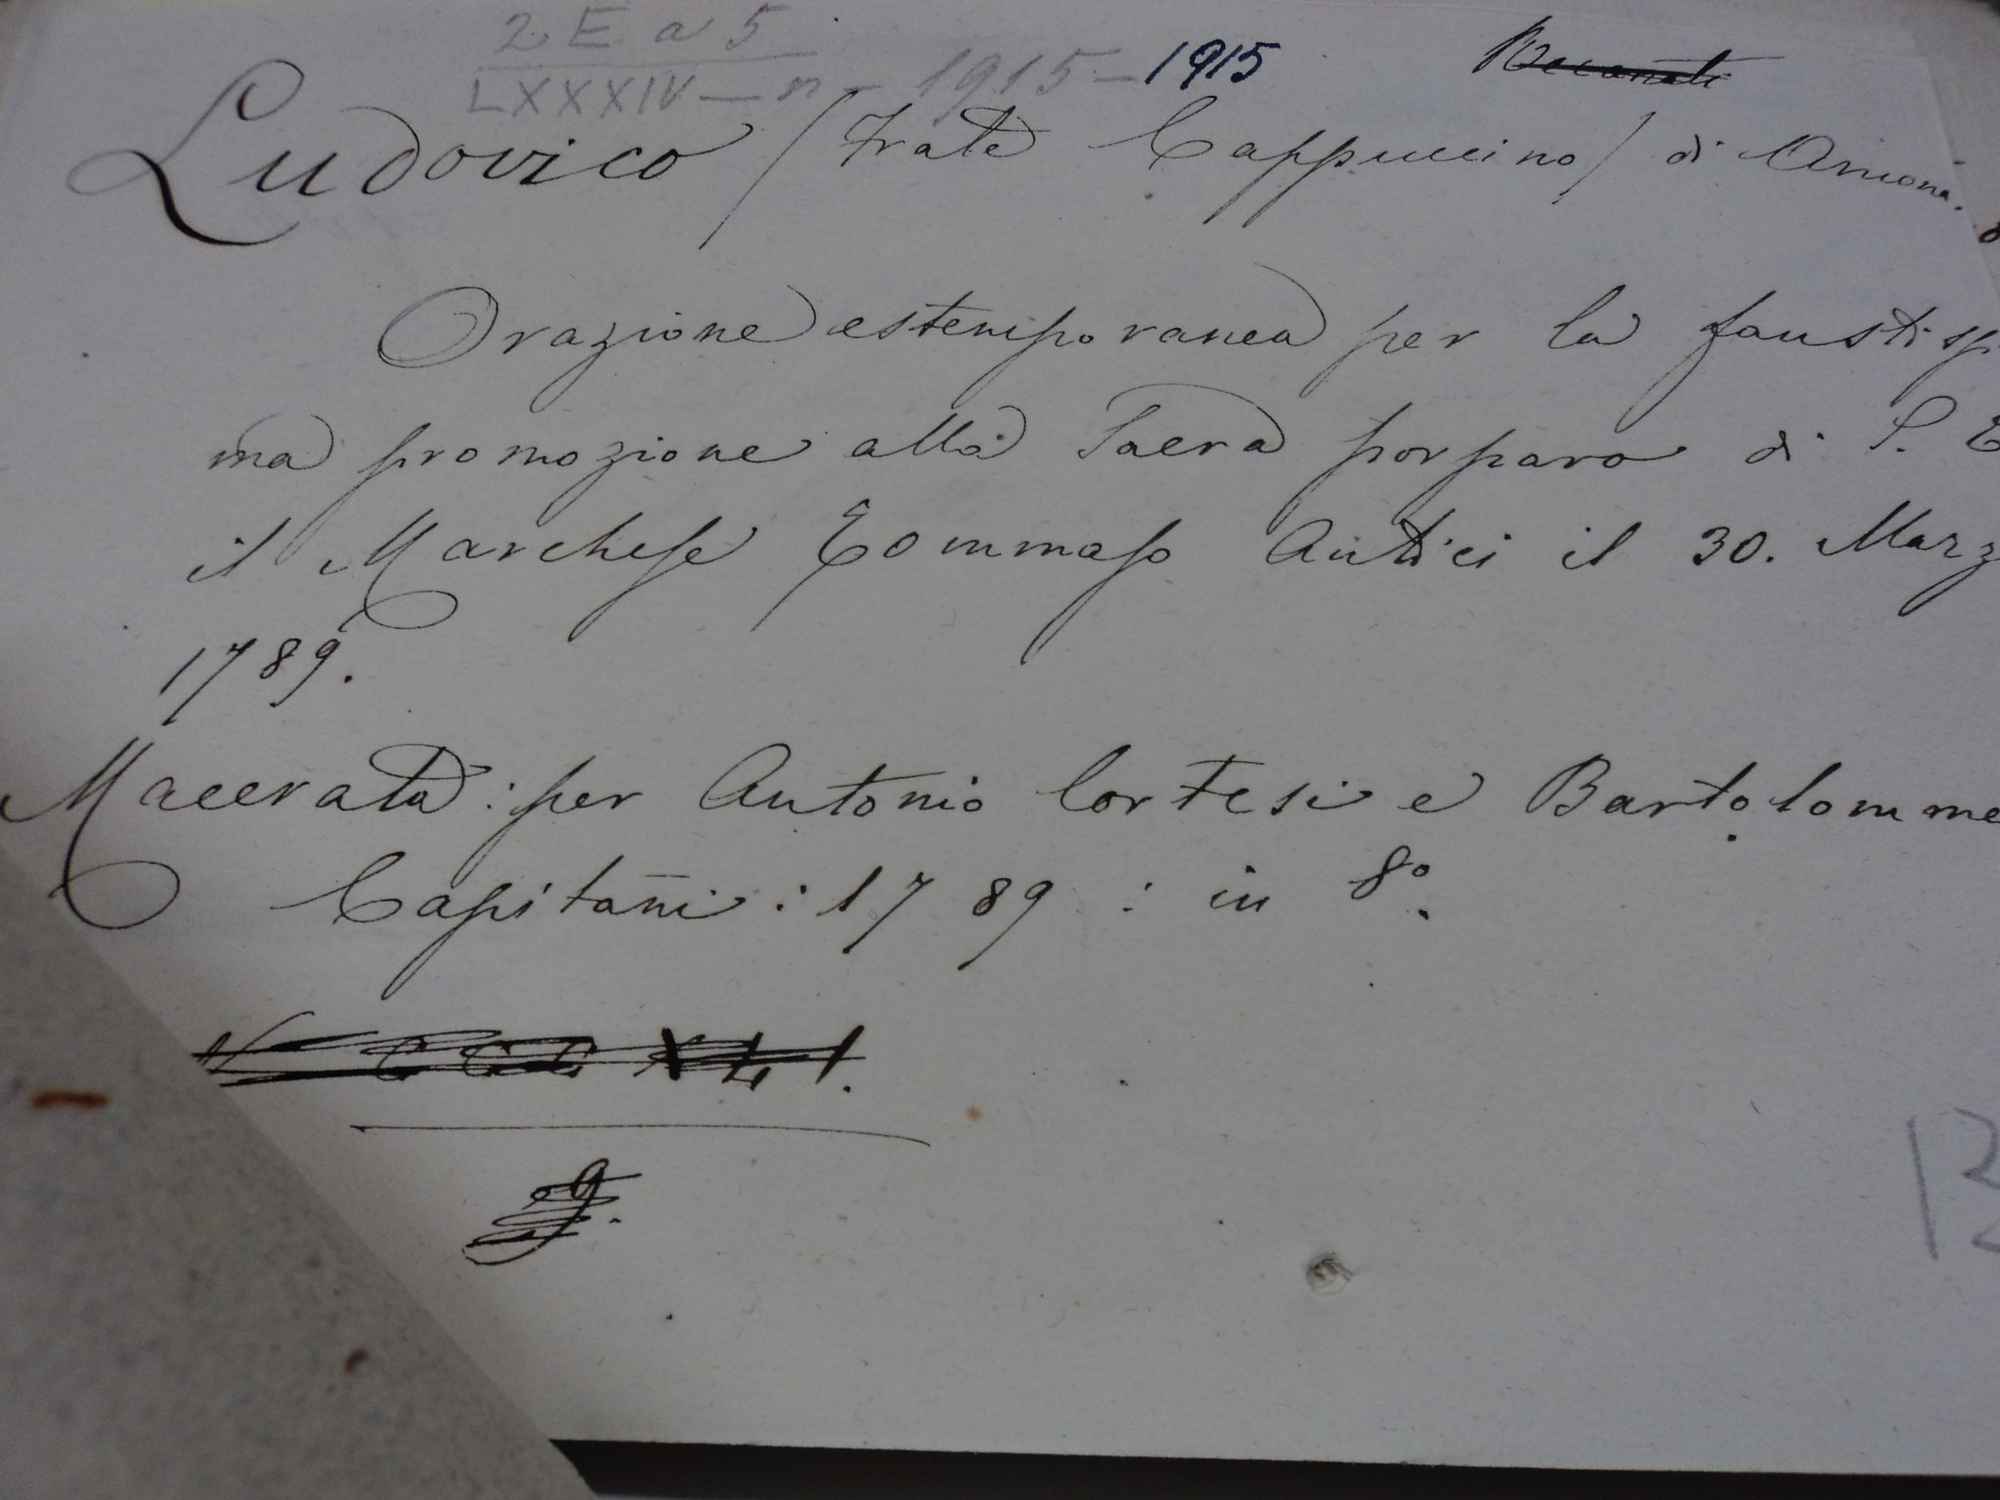 2 E a 5
LXXXIV — n - 1915 - 1915 Recanati
Ludovico / Frate Cappuccino / di Ancona.
Orazione estemporanea per la faustiss
ma promozione alla Sacra porpara di S. E
il Marchese Tommaso Antici il 30. Marz
1789.
Macerata: per Antonio Cortesi e Bartolomme
Capitani: 1789: in 8º.
N CCC XLI.